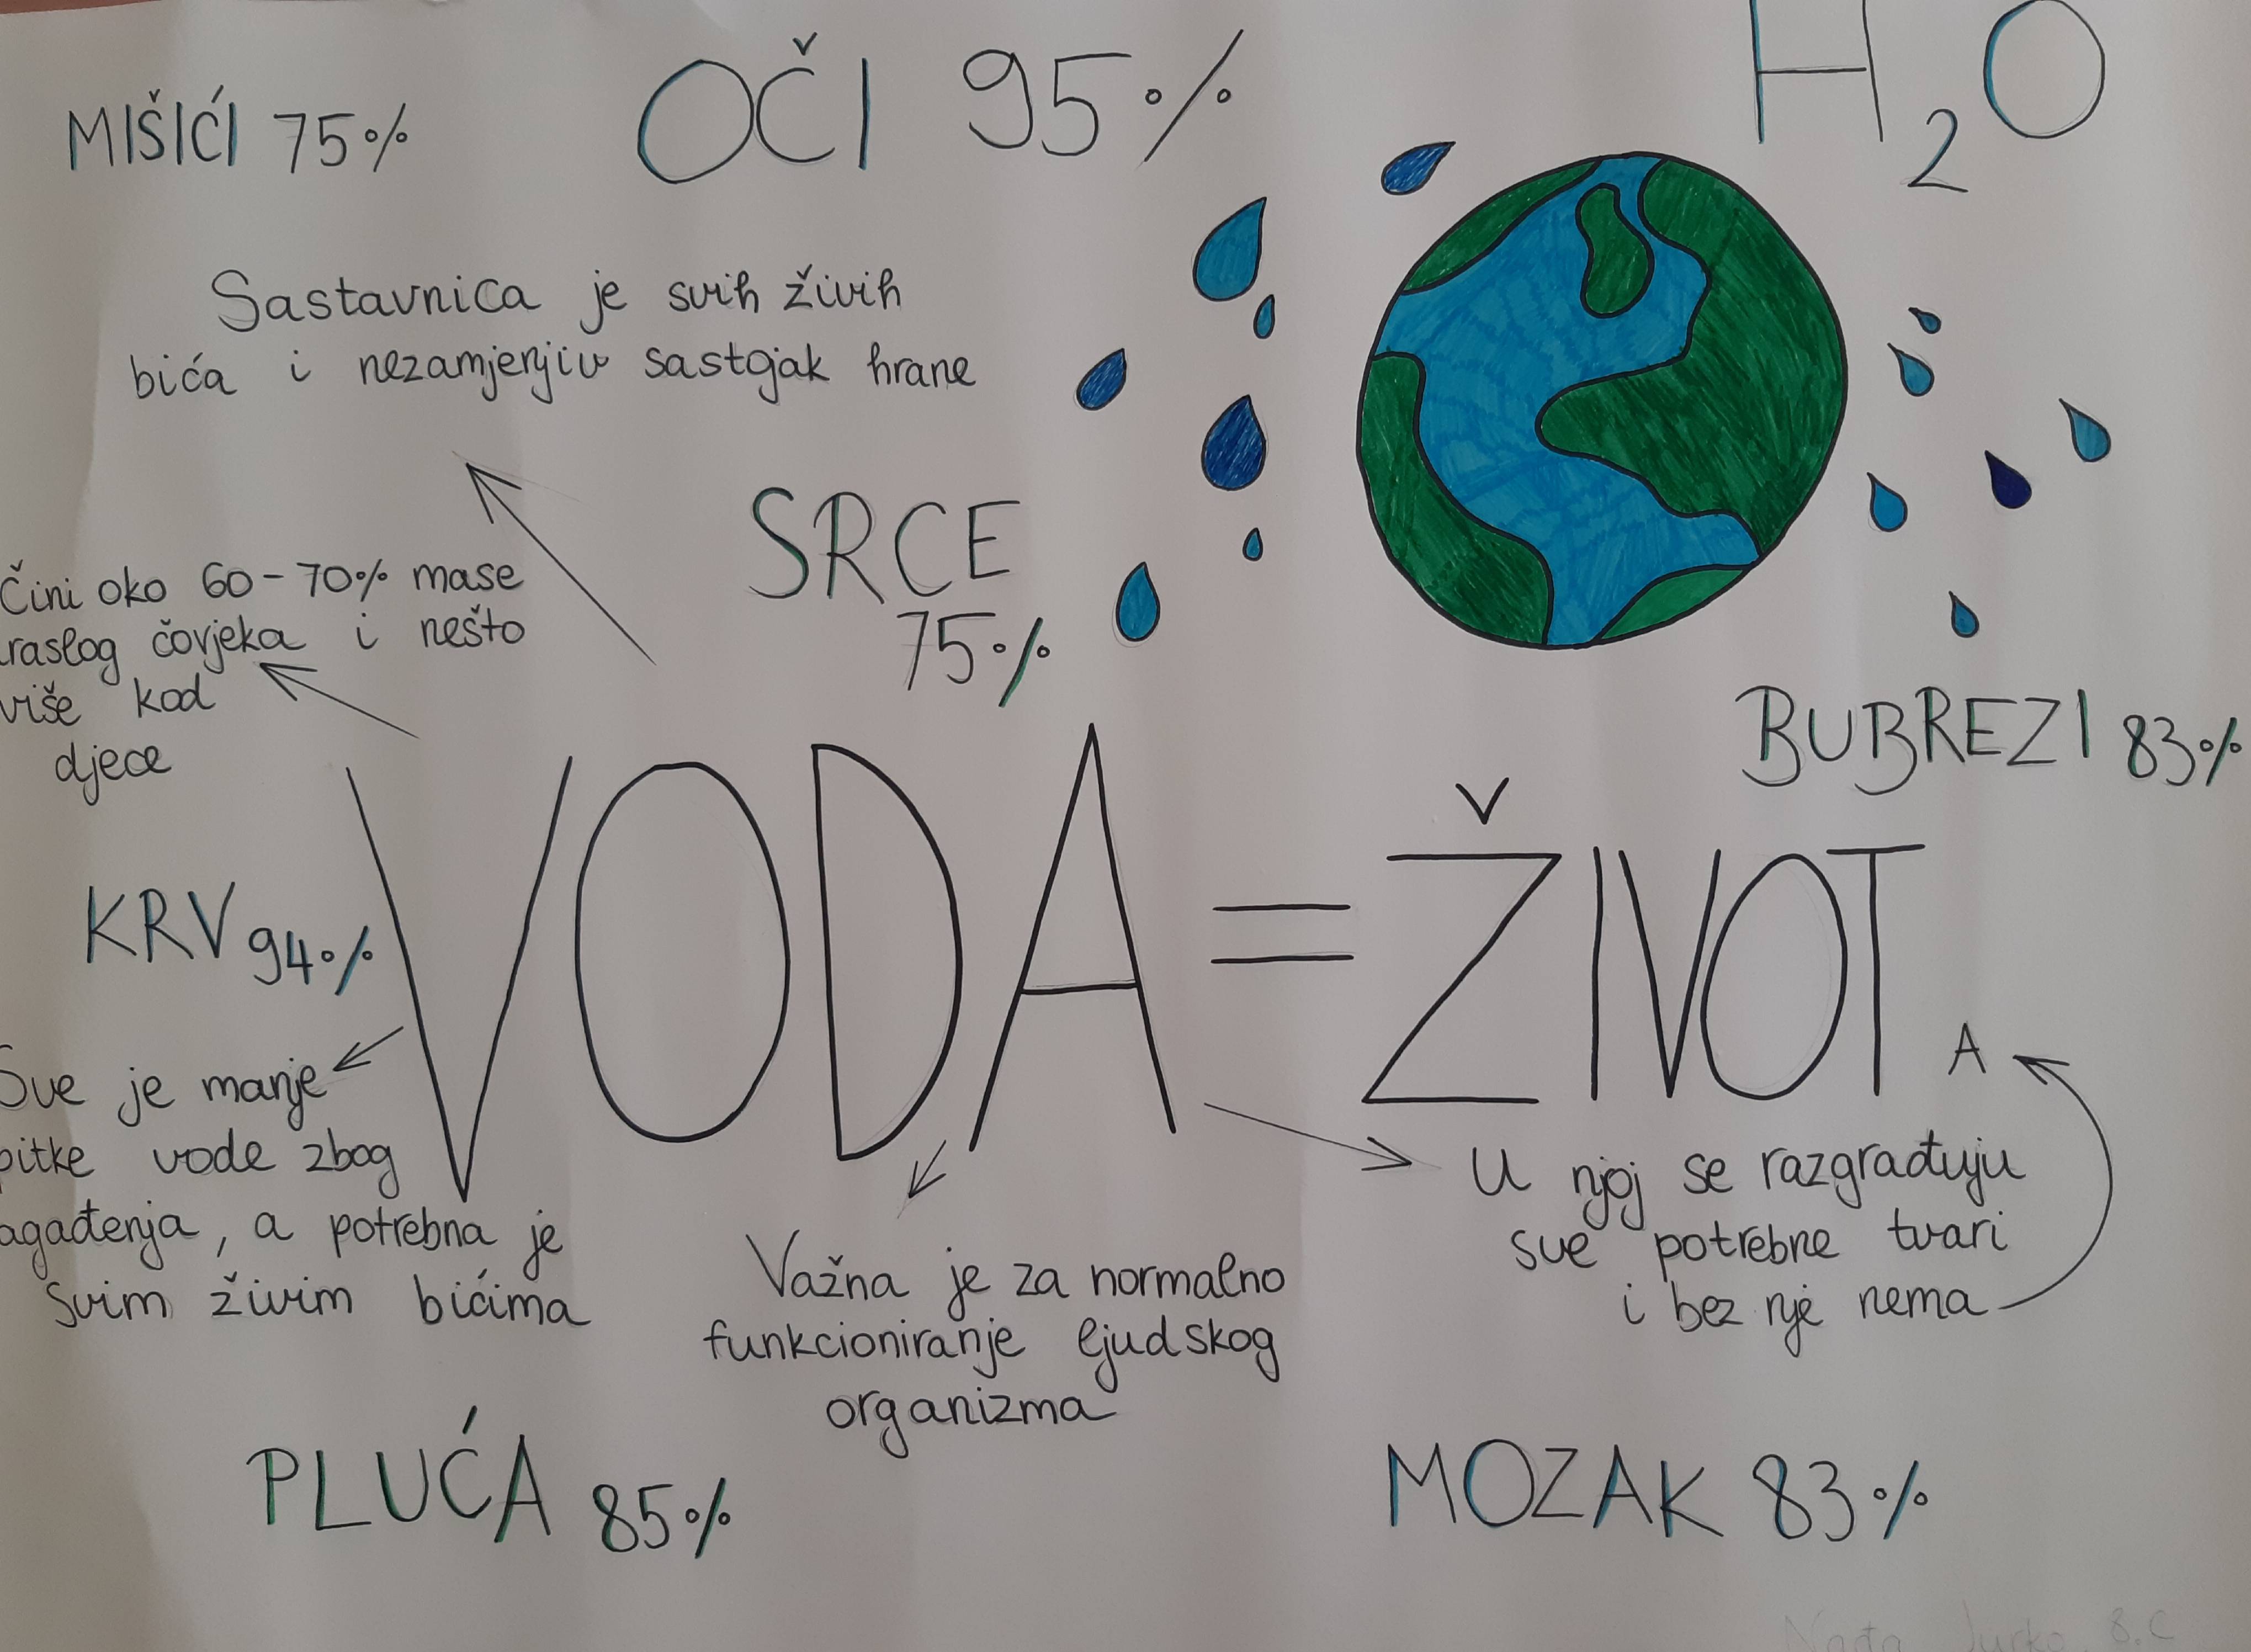 MIŠIĆI 75%
OČI 95%
H2O
Sastavnica je svih živih
bića i nezamjenjiv sastojak hrane
SRCE
75%
Čini oko 60-70% mase
raslog čovjeka i nešto
više kod
djece
BUBREZI 83%
VODA = ŽIVOT
A
KRV 94%
Sve je manje
pitke vode zbog
agađenja, a potrebna je
svim živim bićima
U njoj se razgrađuju
sve potrebne tvari
i bez nje nema
Važna je za normalno
funkcioniranje ljudskog
organizma
PLUĆA 85%
MOZAK 83%
8.C